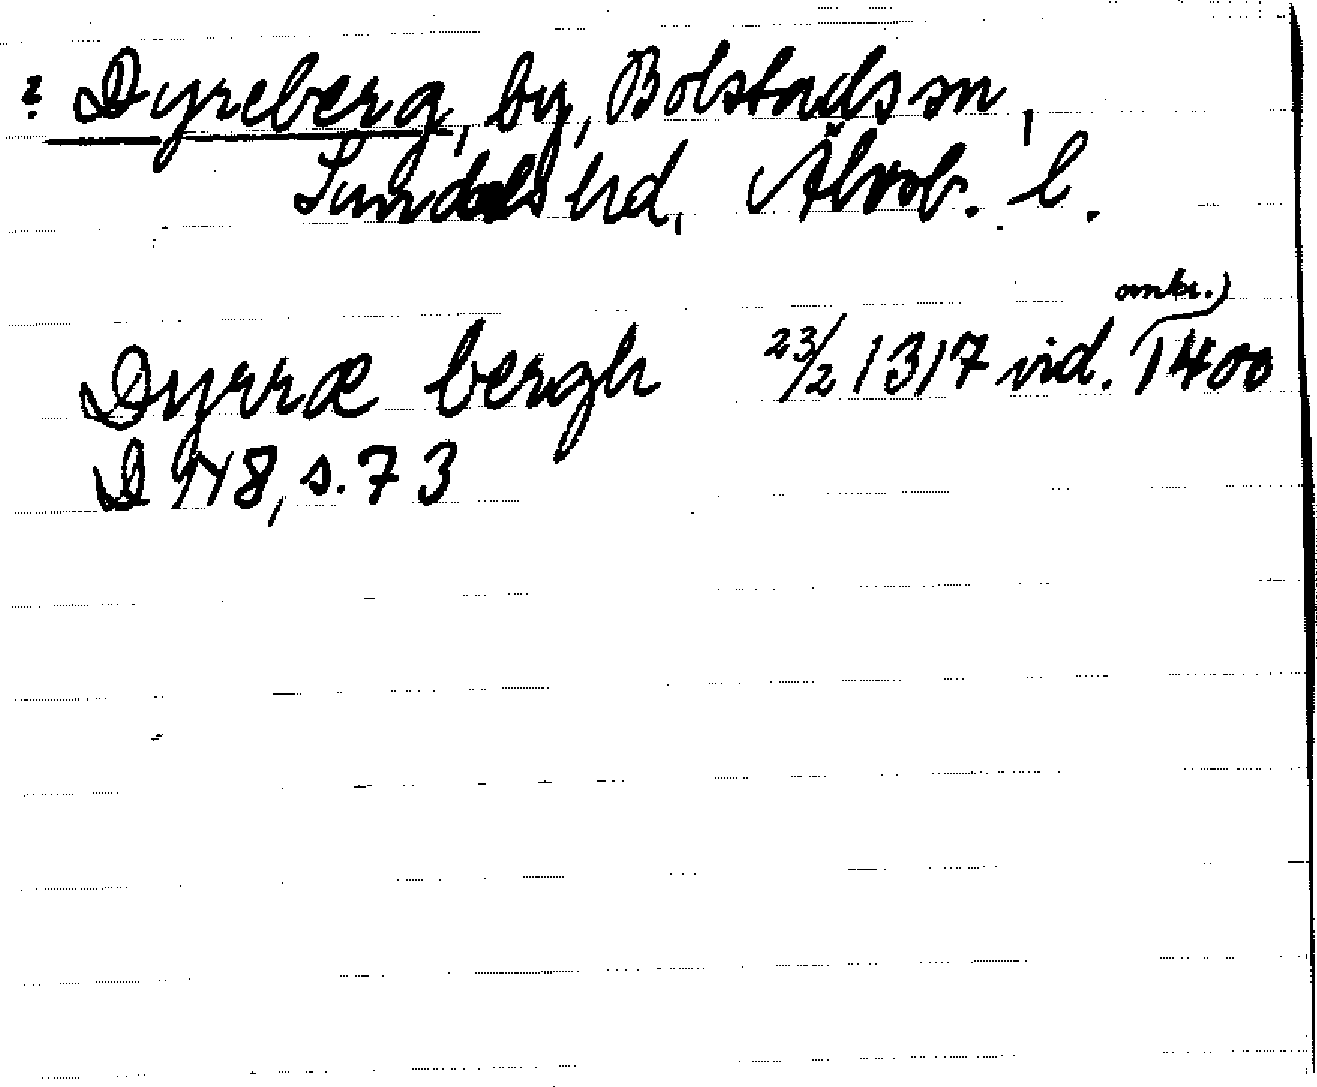 ? Dyreberg, by, Bolstads sn,
Sundals hd, Älvsb. l.
omkr.)
Dyrræ bergh 23/2 1317 vid. 1400
D 148, s. 73